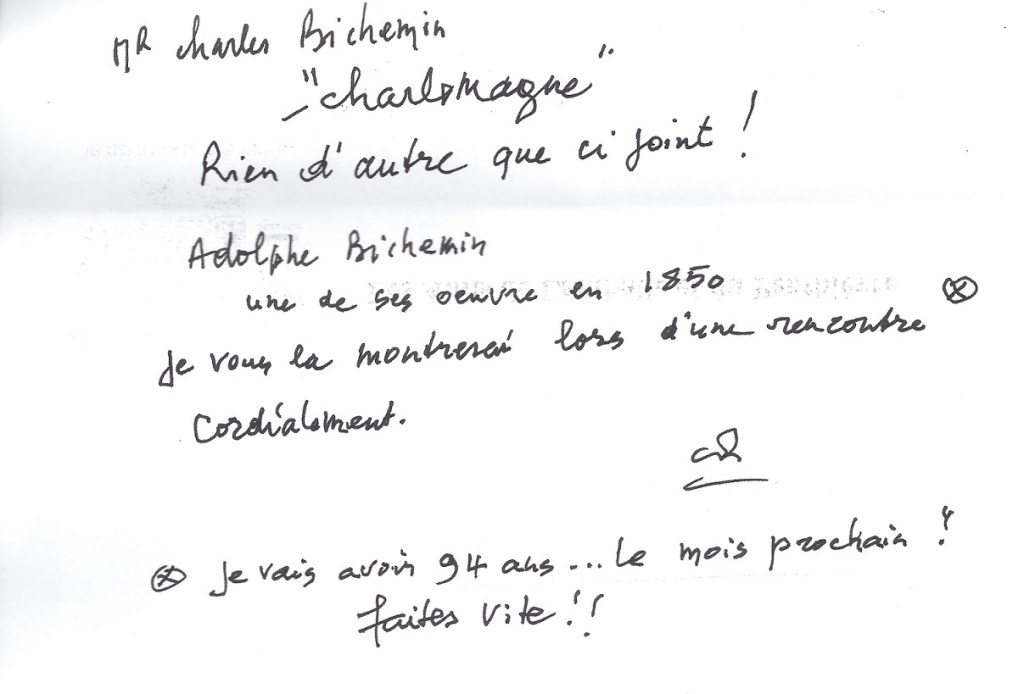 MR Charles Bichemin
"Charlemagne"
Rien d'autre que ci joint !
Adolphe Bichemin
une de ses oeuvre en 1850
Je vous la montrerai lors d'une rencontre ⊗
Cordialement.
⊗ Je vais avoir 94 ans ... le mois prochain !
faites vite !!